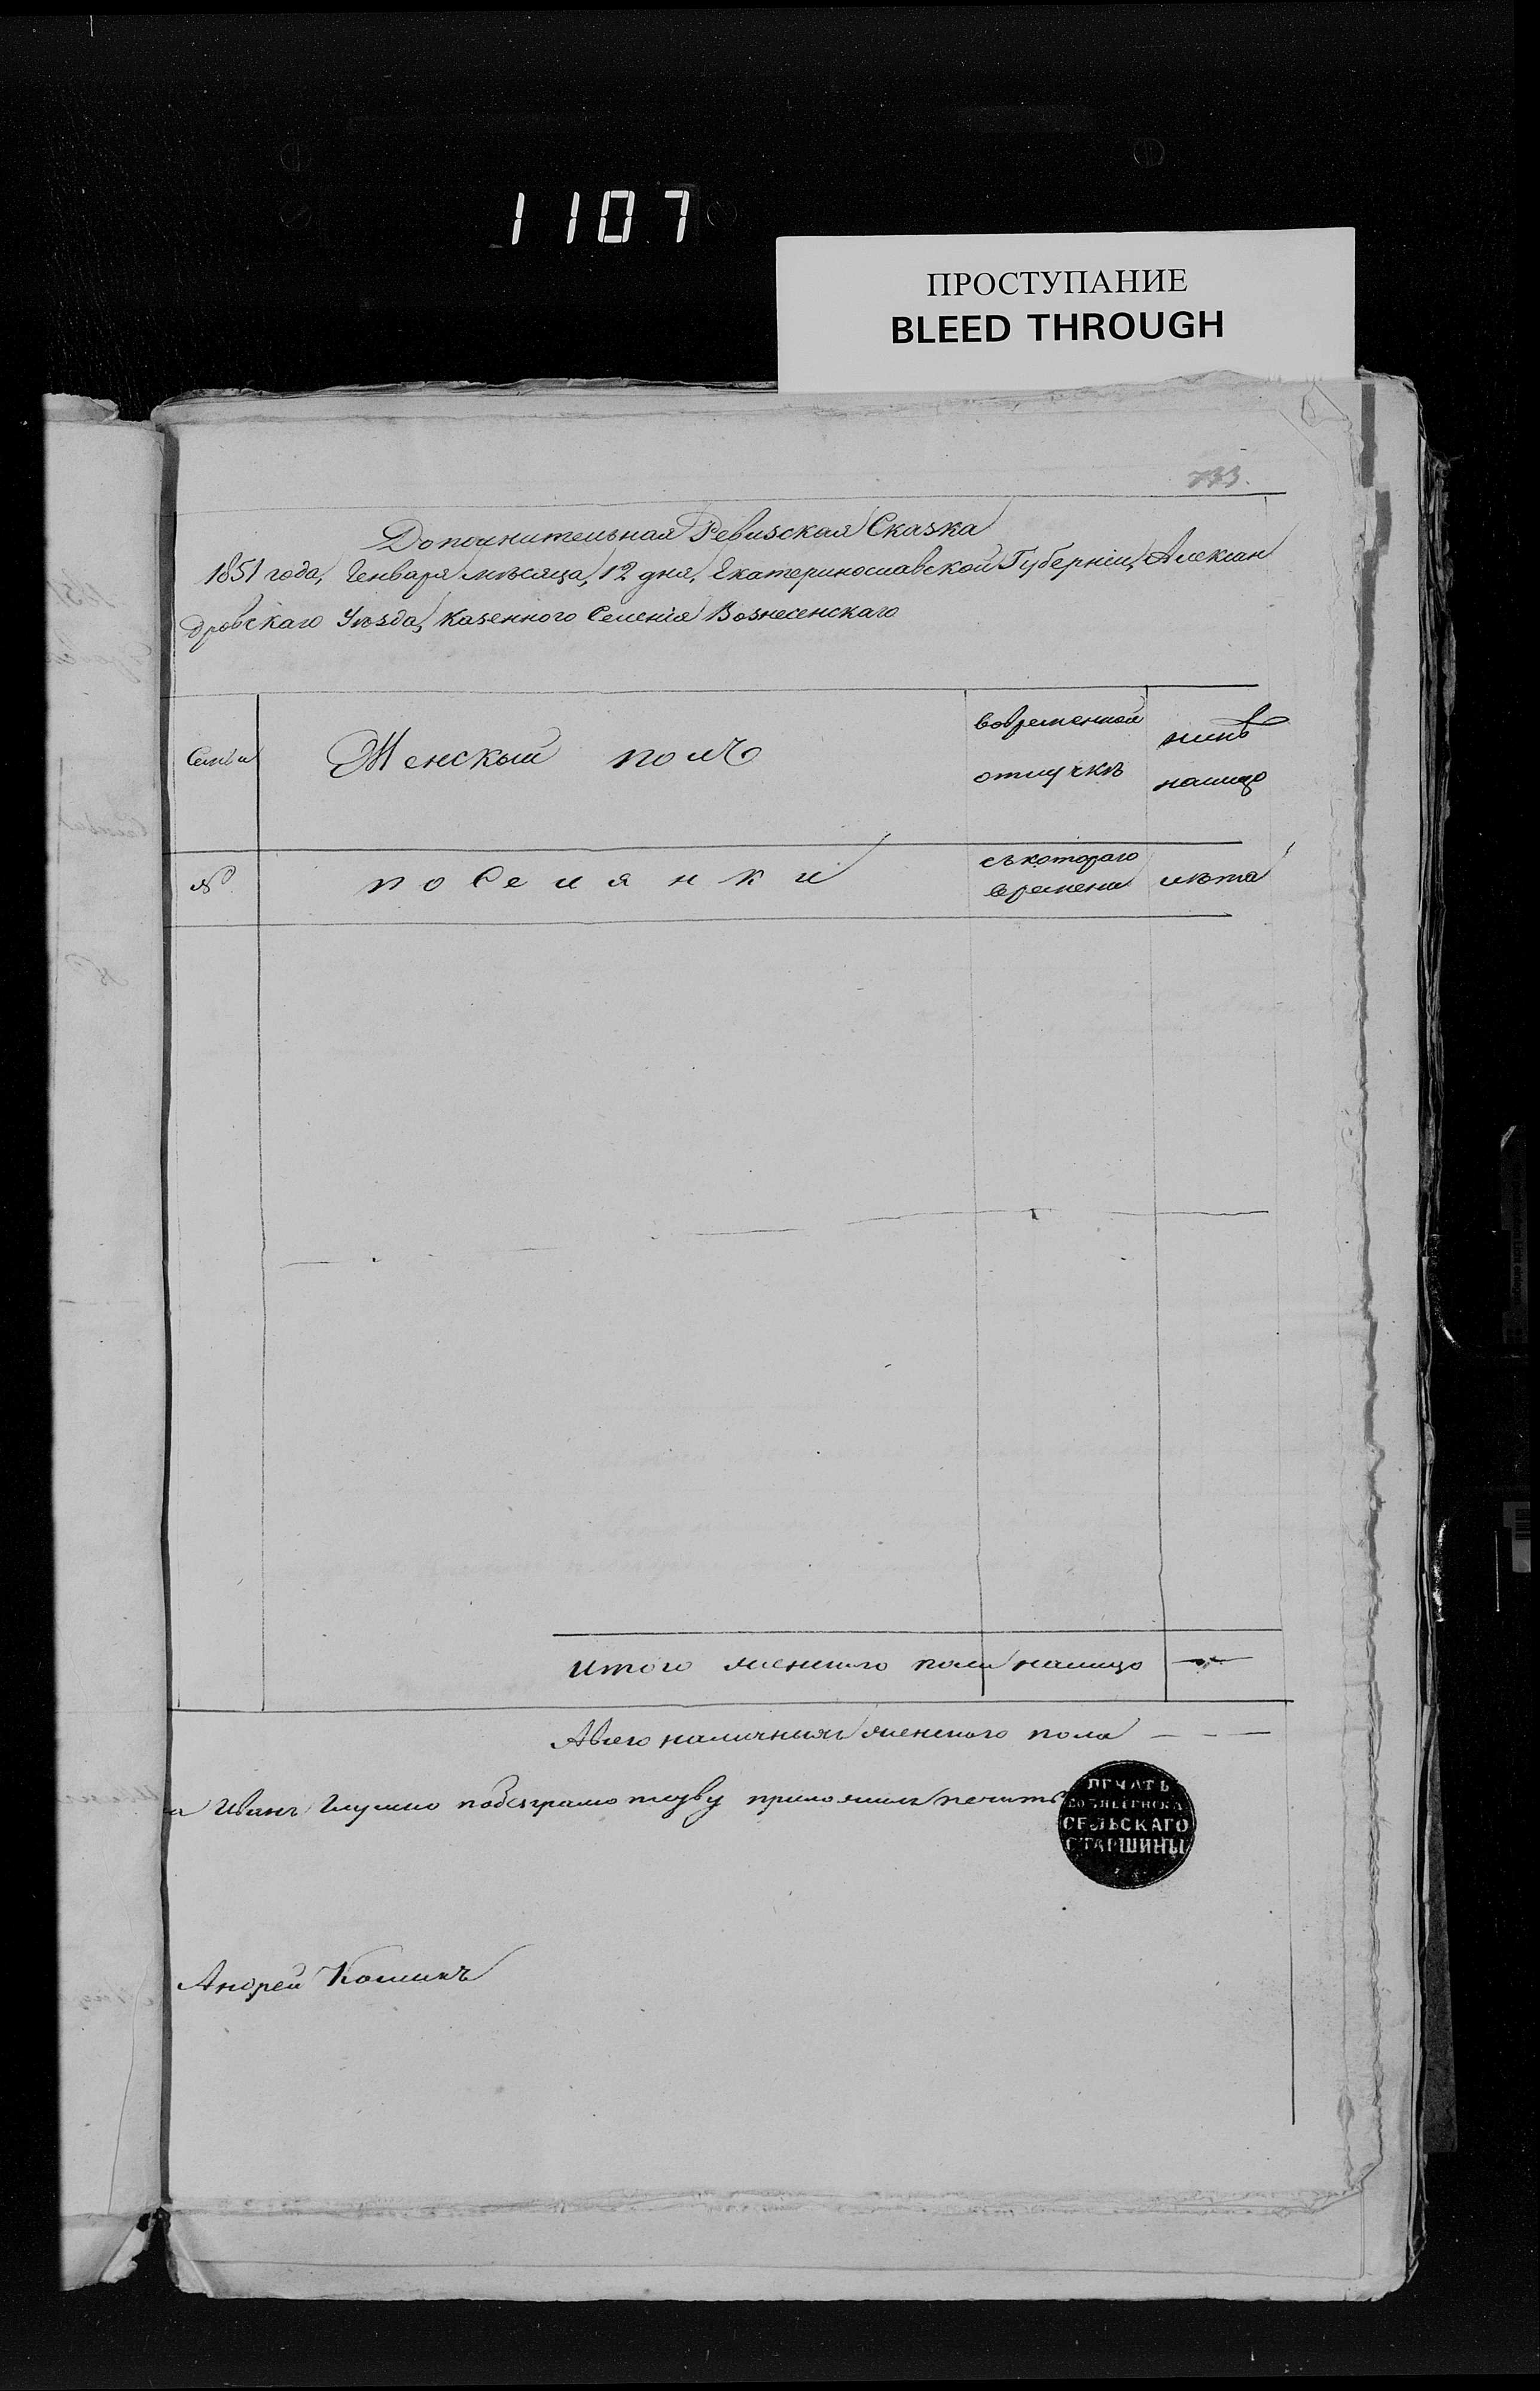 1107
ПРОСТУПАНИЕ
BLEED THROUGH
733.
Дополнительная Ревизская Сказка
1851 года, Генваря месяца, 12 дня, Екатеринославской Губерніи, Алексан
дровскаго Уѣзда, Казенного Селенія Вознесенскаго
Семьи
Женскый полъ
вовременной
отлучкѣ
нинѣ
налицо
№
поселянки
съкотораго
времени
лѣта
итого женского пола налицо
Авсего наличныхъ женского пола
Иванъ Глушко побезграмотству приложилъ печать
ПЕЧАТЬ
ВОЗНЕСЕНСКА
СЕЛЬСКАГО
СТАРШИНЫ
Андрей